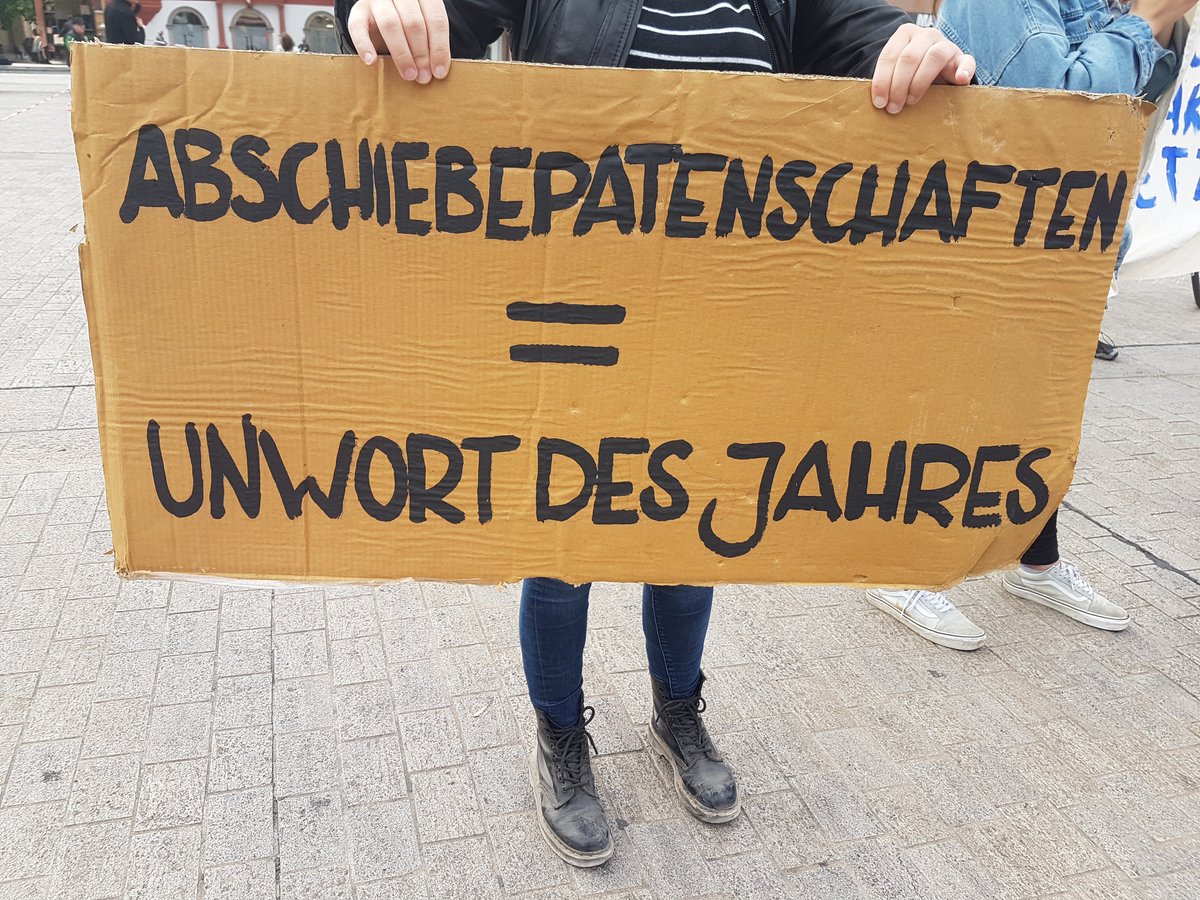 ABSCHIEBEPATENSCHAFTEN
=
UNWORT DES JAHRES